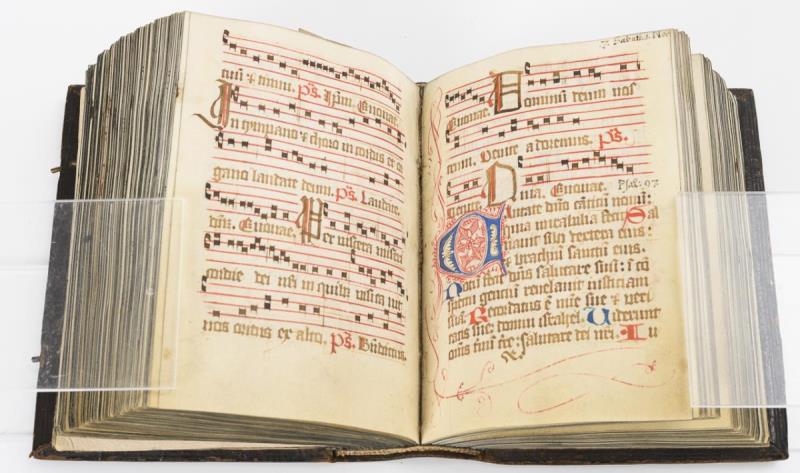 eum & omnu. ps. Ipm. Euouae.
In tympano & choro in cordis et or
gano laudate deum. ps. Laudate.
dm. Euouae. Per viscera miseri
cordie dei nri in quibz visita uit
nos oriens ex alto. ps. Bndictus.
7. Sabath. ad Noc
Euouae. Dominum deum nos
trum. Venite adoremus. ps.
Venite. Quia. Euouae. Psal: 97.
Cantate dno cantic nouu:
quia mirabilia fecit Sal
uauit sibi dextera eius:
& brachiu sanctum eius.
Notu fecit dns salutare suu: in
spectu gentiu reuelauit iusticiam
sua. Recordatus e mie sue & veri
tatis sue domui israhel. Viderunt
omis tmi tre: salutare dei nri. Iu